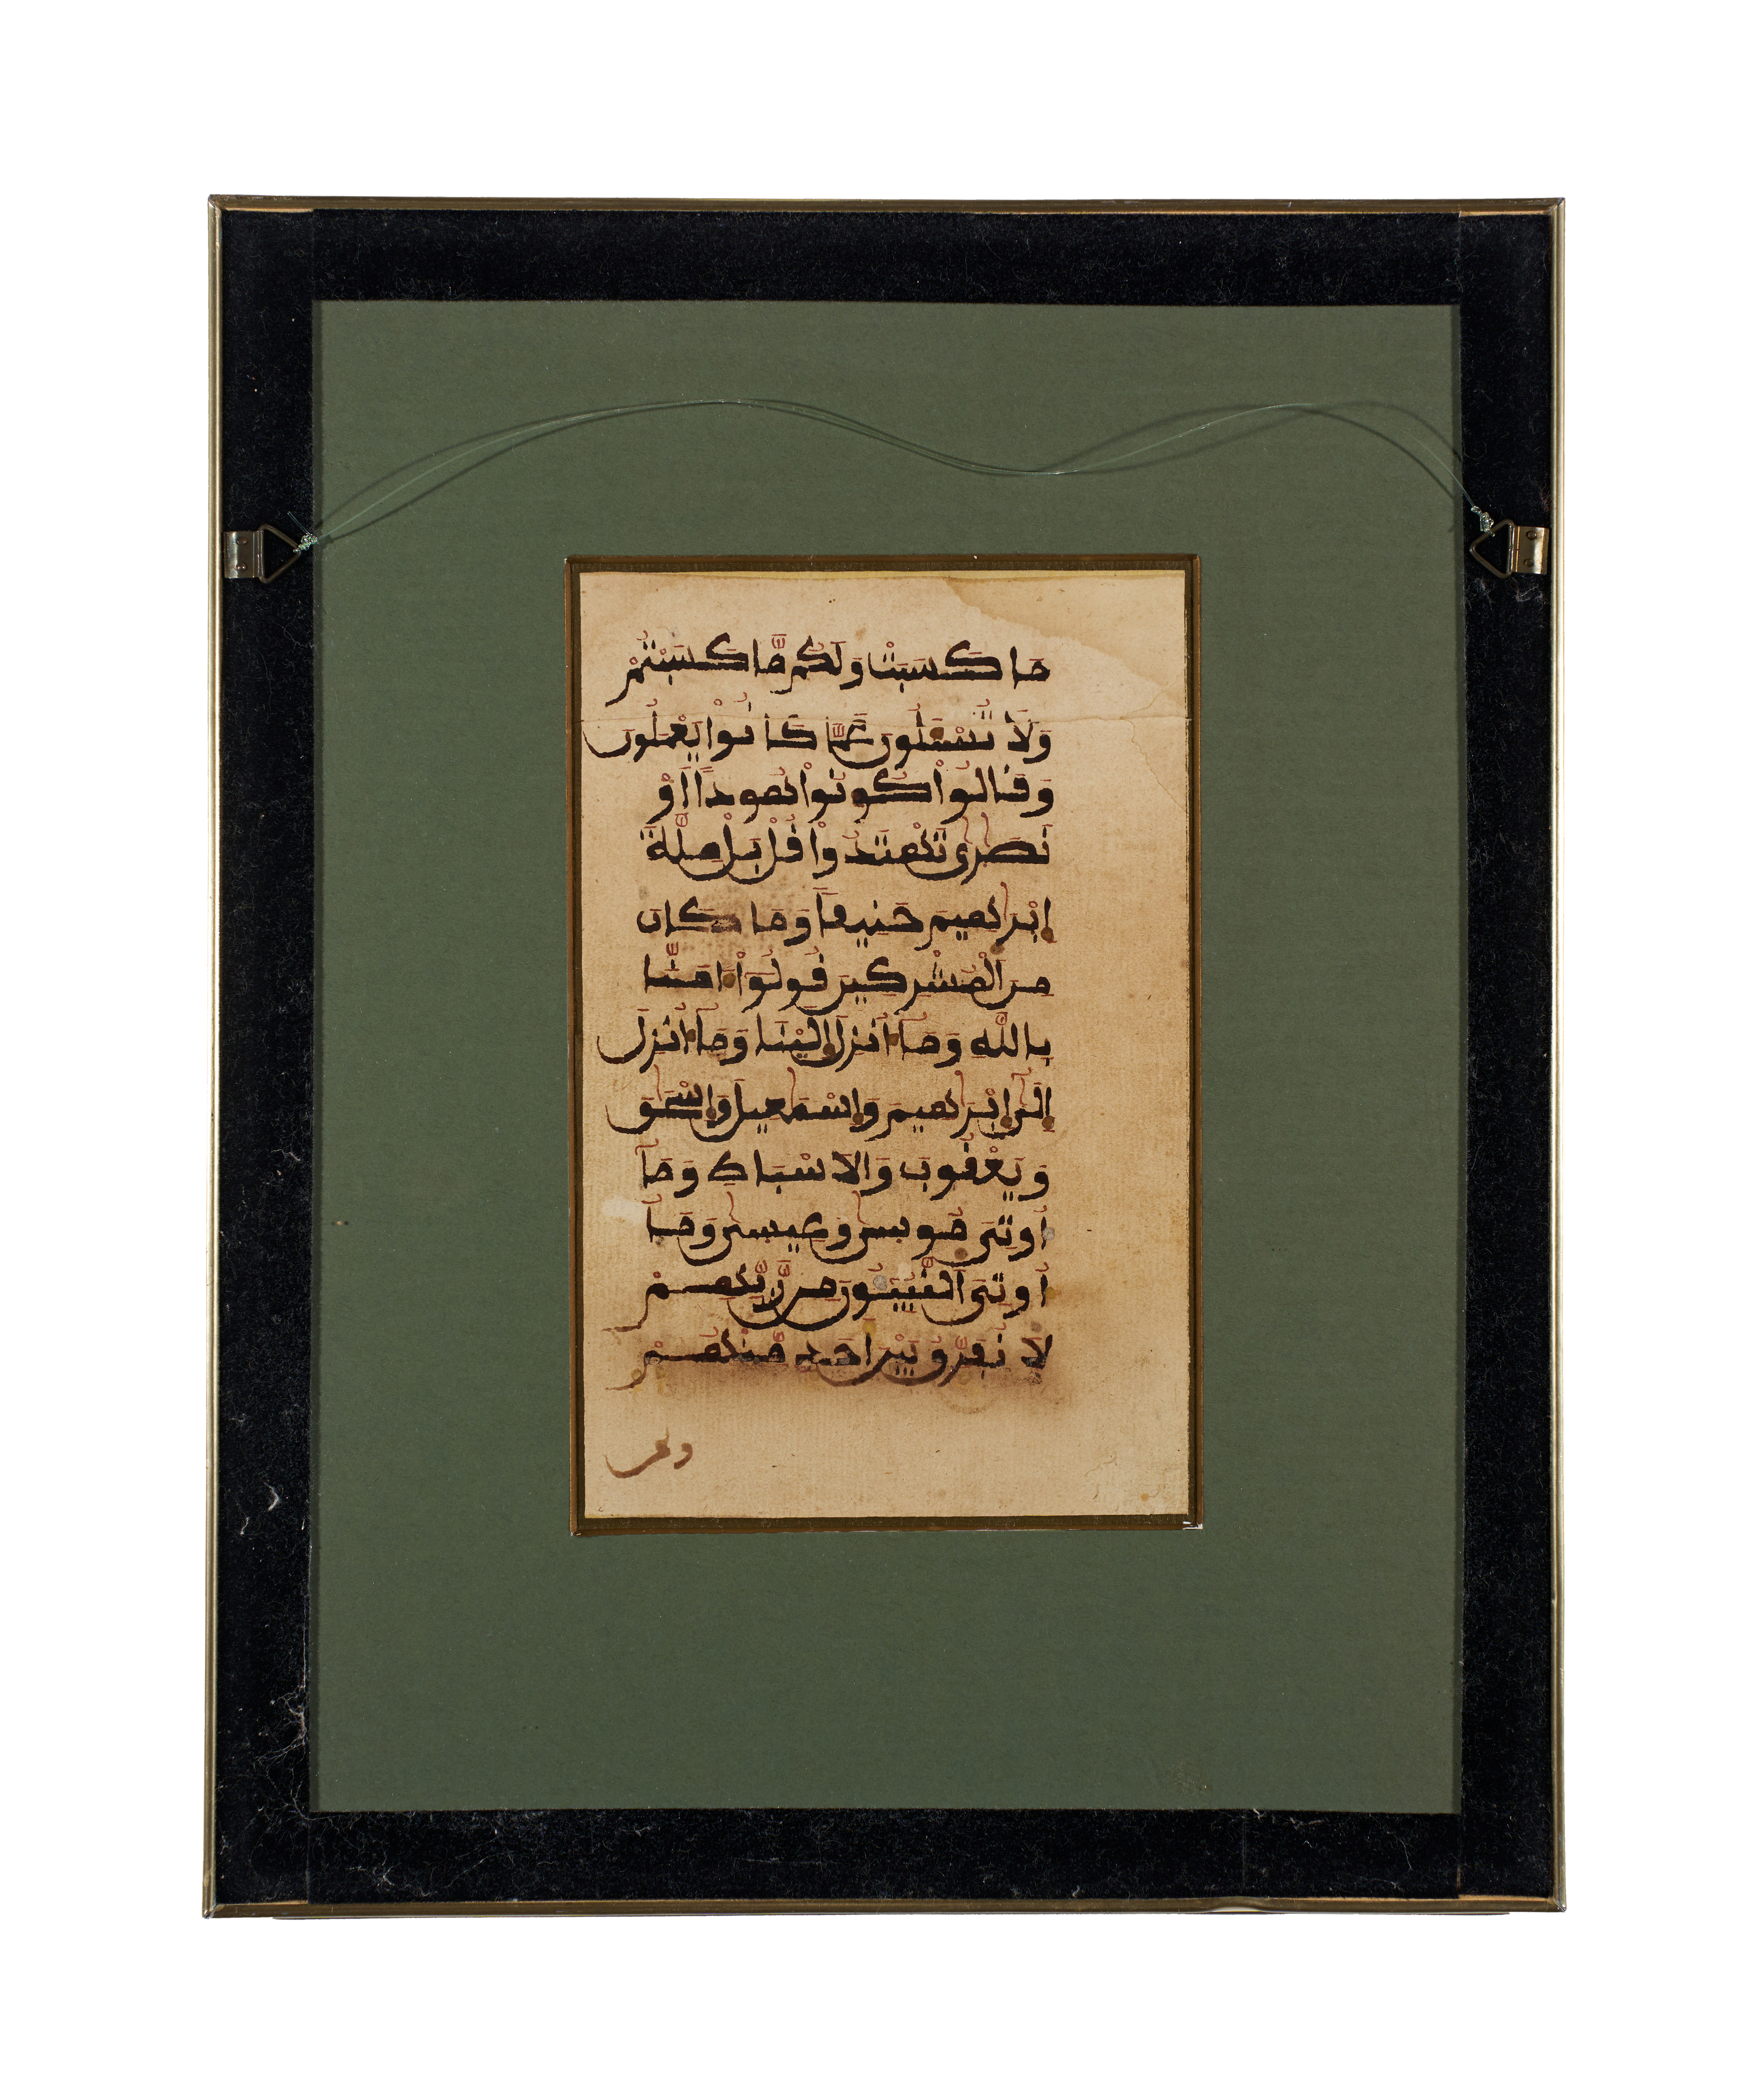 مَا كَسَبَتْ وَلَكُم مَّا كَسَبْتُمْ
وَلَا تُسْـَٔلُونَ عَمَّا كَانُوا۟ يَعْمَلُونَ
وَقَالُوا۟ كُونُوا۟ هُوداً اَوْ
نَصَٰرَىٰ تَهْتَدُوا۟ قُلْ بَلْ مِلَّةَ
إِبْرَٰهِيمَ حَنِيفاً وَمَا كَانَ
مِنَ ٱلْمُشْرِكِينَ قُولُوٓا۟ ءَامَنَّا
بِاللَّهِ وَمَآ أُنزِلَ إِلَيْنَا وَمَآ أُنزِلَ
إِلَىٰٓ إِبْرَٰهِيمَ وَإِسْمَٰعِيلَ وَإِسْحَٰقَ
وَيَعْقُوبَ وَالَاسْبَاطِ وَمَآ
أُوتِيَ مُوسَىٰ وَعِيسَىٰ وَمَآ
أُوتِيَ ٱلنَّبِيٓـُٔونَ مِن رَّبِّهِمْ
لَا نُفَرِّقُ بَيْنَ أَحَدٍ مِّنْهُمْ
ونحن